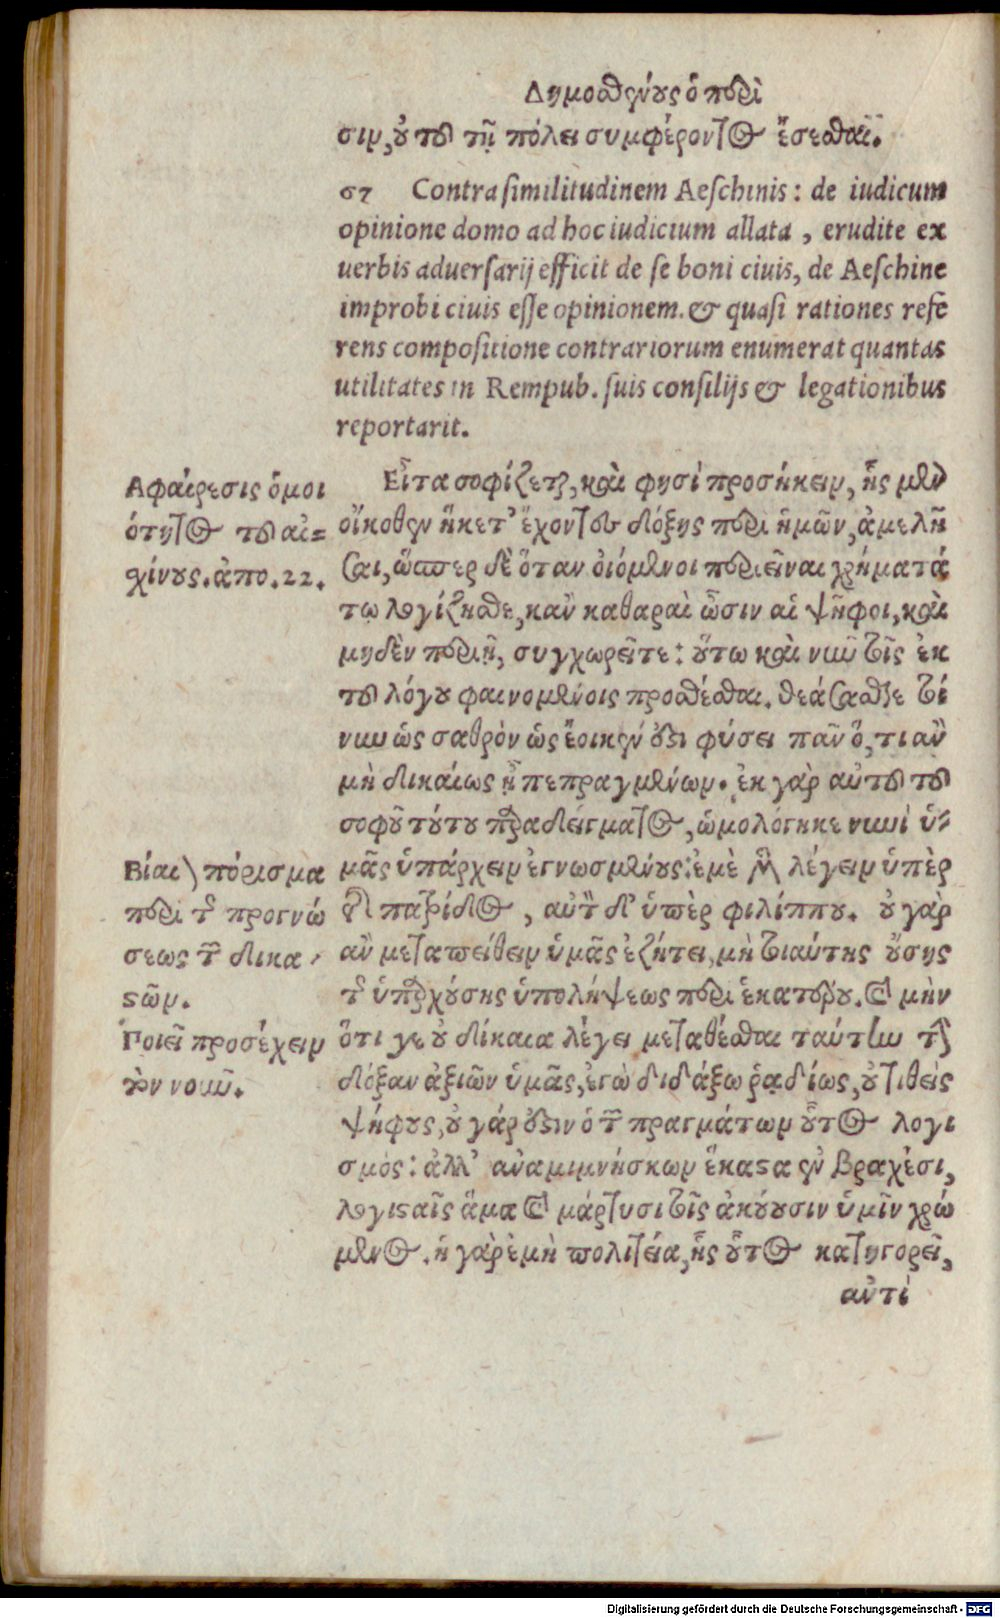 Δημοσθένους ὁ περὶ
σιν, οὐ τοῦ τῇ πόλει συμφέροντος ἔσεσθαι.
67 Contra similitudinem Aeschinis: de iudicum
opinione domo ad hoc iudicium allata, erudite ex
uerbis aduersarij efficit de se boni ciuis, de Aeschine
improbi ciuis esse opinionem. & quasi rationes refe
rens compositione contrariorum enumerat quantas
utilitates in Rempub. suis consilijs & legationibus
reportarit.
Αφαίρεσις ὁμοι
ότητος τοῦ αἰ=
χίνους. ἀπο. 22.
Εἶτα σοφίζεται, καὶ φησὶ προσήκειν, ἧς μὲν
οἴκοθεν ἥκετ' ἔχοντες δόξης περὶ ἡμῶν, ἀμελῆ
σαι, ὥσπερ δὲ ὅταν οἰόμενοι περιεῖναι χρήματά
τῳ λογίζησθε, κἂν καθαραὶ ὦσιν αἱ ψῆφοι, καὶ
μηδὲν περιῇ, συγχωρεῖτε: οὕτω καὶ νῦν τοῖς ἐκ
τοῦ λόγου φαινομένοις προσθέσθαι. θεάσασθε τοί
νυν ὡς σαθρὸν ὡς ἔοικεν ἐστὶ φύσει πᾶν ὅ, τι ἂν
μὴ δικαίως ᾖ πεπραγμένων. ἐκ γὰρ αὐτοῦ τοῦ
σοφοῦ τούτου παραδείγματος, ὡμολόγηκε νυνὶ ὑ-
Βίαιον πόρισμα
περὶ τῆς προγνώ
σεως τῶν δικα-
στῶν.
Ποιεῖ προσέχειν
τὸν νοῦν.
μᾶς ὑπάρχειν ἐγνωσμένους: ἐμὲ μὲν λέγειν ὑπὲρ
τῆς πατρίδος, αὐτὸν δ' ὑπὲρ φιλίππου. οὐ γὰρ
ἂν μεταπείθειν ὑμᾶς ἐζήτει, μὴ τοιαύτης οὔσης
τῆς ὑπαρχούσης ὑπολήψεως περὶ ἑκατέρου. καὶ μὴν
ὅτι γε οὐ δίκαια λέγει μεταθέσθαι ταύτην τὴν
δόξαν ἀξιῶν ὑμᾶς, ἐγὼ διδάξω ῥᾳδίως, οὐ τιθεὶς
ψήφους, οὐ γάρ ἐστιν ὁ τῶν πραγμάτων οὗτος λογι
σμός: ἀλλ' ἀναμιμνήσκων ἕκαστα ἐν βραχέσι,
λογισταῖς ἅμα καὶ μάρτυσι τοῖς ἀκούουσιν ὑμῖν χρώ
μενος. ἡ γὰρ ἐμὴ πολιτεία, ἧς οὗτος κατηγορεῖ,
αντὶ